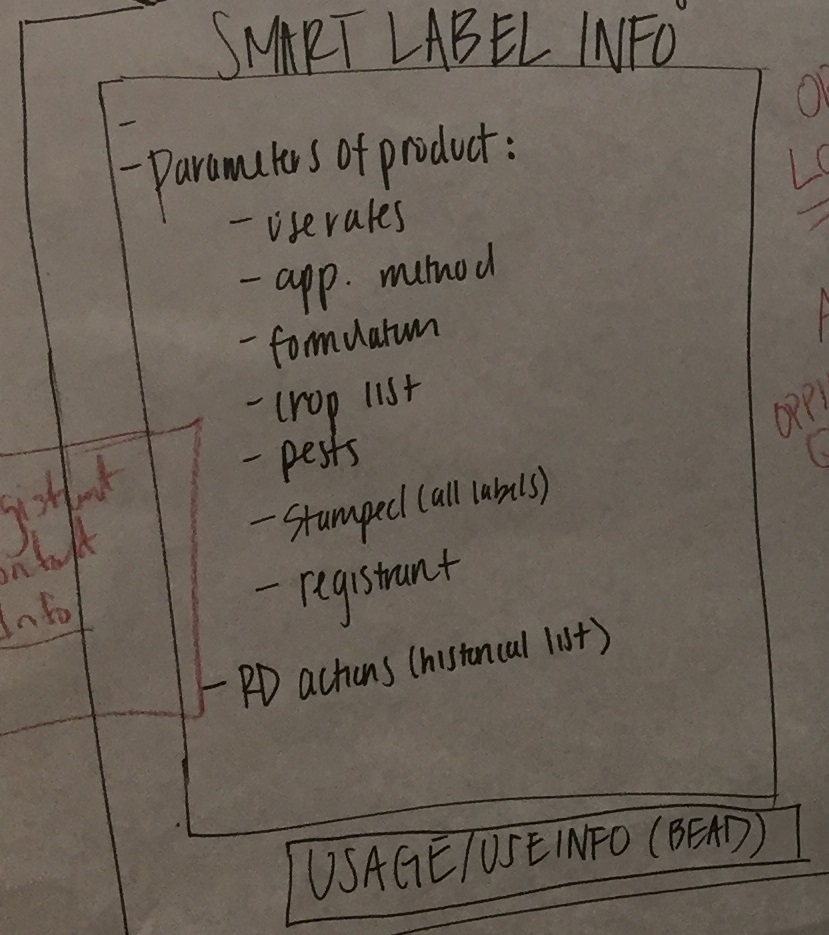 SMART LABEL INFO
- parameters of product:
- use rates
- app. method
- formulation
- crop list
- pests
- stamped (all labels)
- registrant
- RD actions (historical list)
USAGE/USE INFO (BEAD)
Info